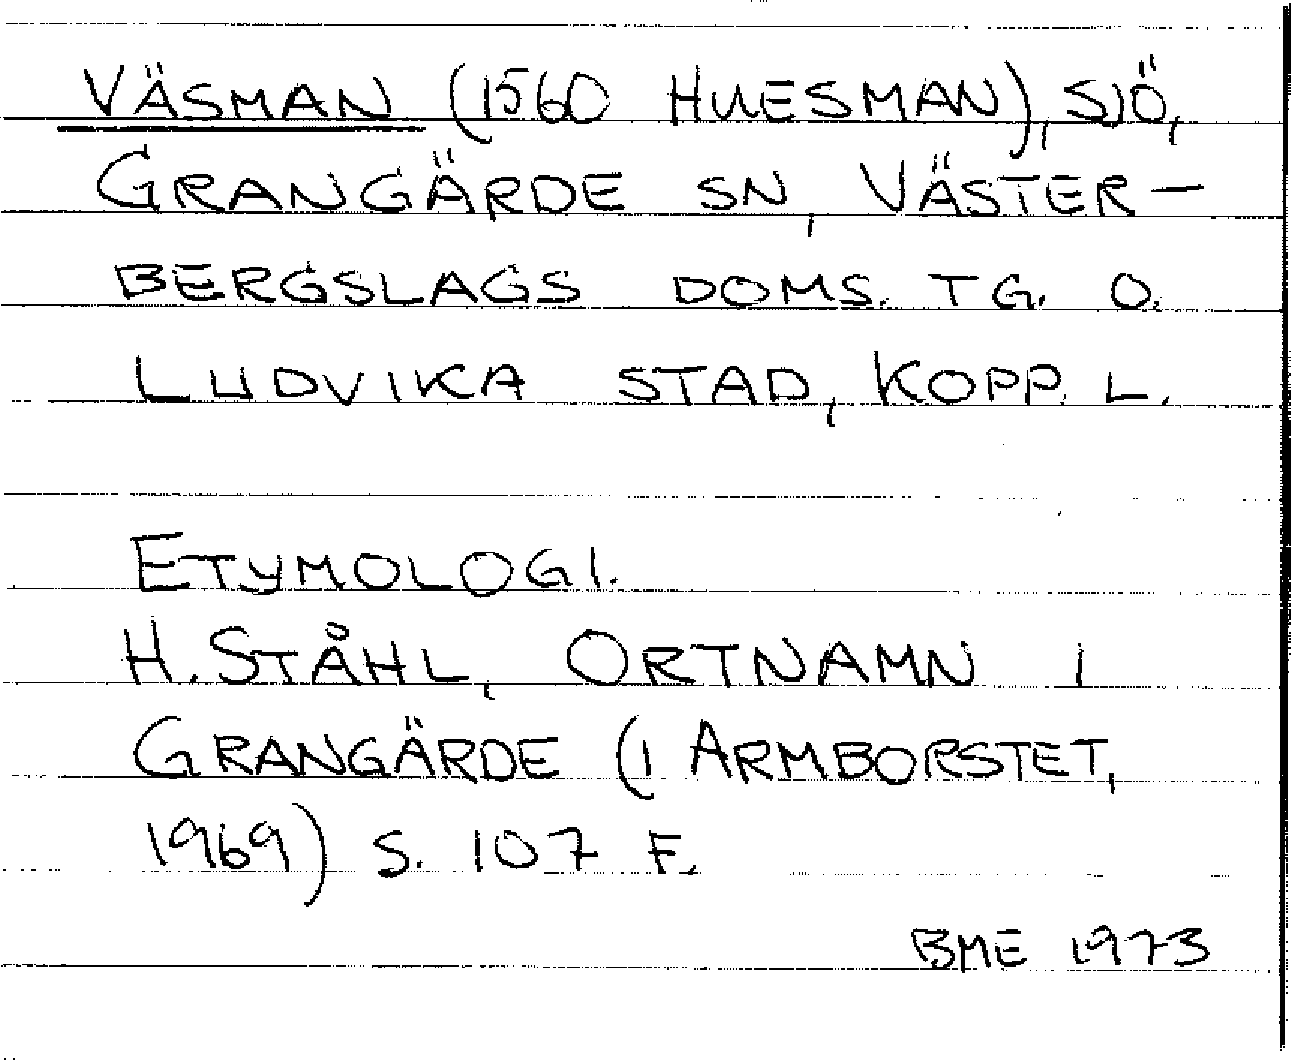 VÄSMAN (1560 HUESMAN), SJÖ,
GRANGÄRDE SN, VÄSTER-
BERGSLAGS DOMS. TG. O.
LUDVIKA STAD, KOPP. L.
ETYMOLOGI.
H. STÅHL, ORTNAMN I
GRANGÄRDE (I ARMBORSTET,
1969) S. 107 F.
BME 1973